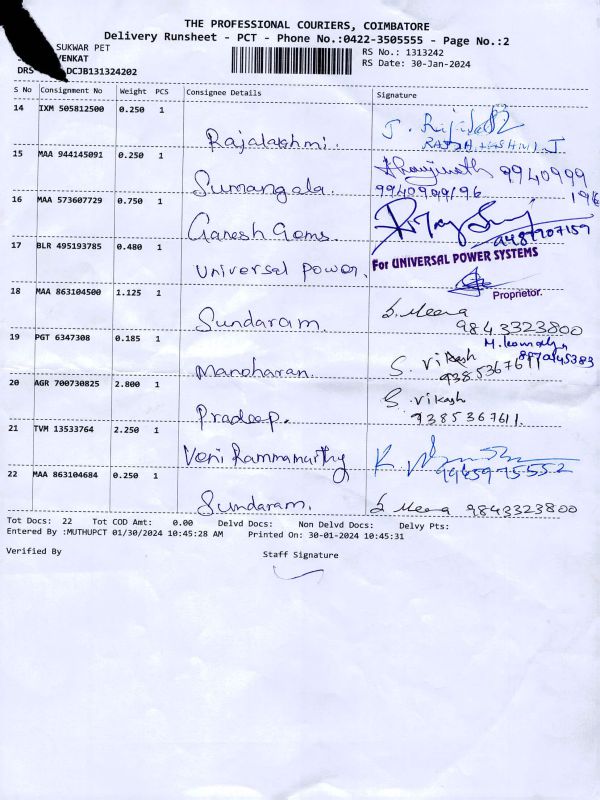 THE PROFESSIONAL COURIERS, COIMBATORE
Delivery Runsheet - PCT - Phone No.:0422-3505555 - Page No.:2
SUKWAR PET
VENKAT
DRS DCJB131324202
RS No.: 1313242
RS Date: 30-Jan-2024
S No Consignment No Weight PCS Consignee Details Signature
14 IXM 505812500 0.250 1
Rajalakshmi.
RAJALAKSHMI. J
15 MAA 944145091 0.250 1
Sumangala. 9940999196
9940999196
16 MAA 573607729 0.750 1
Ganesh Gems.
17 BLR 495193785 0.480 1
Universal Power.
For UNIVERSAL POWER SYSTEMS
Proprietor.
18 MAA 863104500 1.125 1
Sundaram. S. Meena
9843323800
19 PGT 6347308 0.185 1
Manoharan. S. Vikash
9385367611
20 AGR 700730825 2.800 1
Pradeep. S. Vikash
9385367611.
21 TVM 13533764 2.250 1
Veni Rammamurthy
22 MAA 863104684 0.250 1
Sundaram. S. Meena 9843323800
Tot Docs: 22 Tot COD Amt: 0.00 Delvd Docs: Non Delvd Docs: Delvy Pts:
Entered By :MUTHUPCT 01/30/2024 10:45:28 AM Printed On: 30-01-2024 10:45:31
Verified By Staff Signature